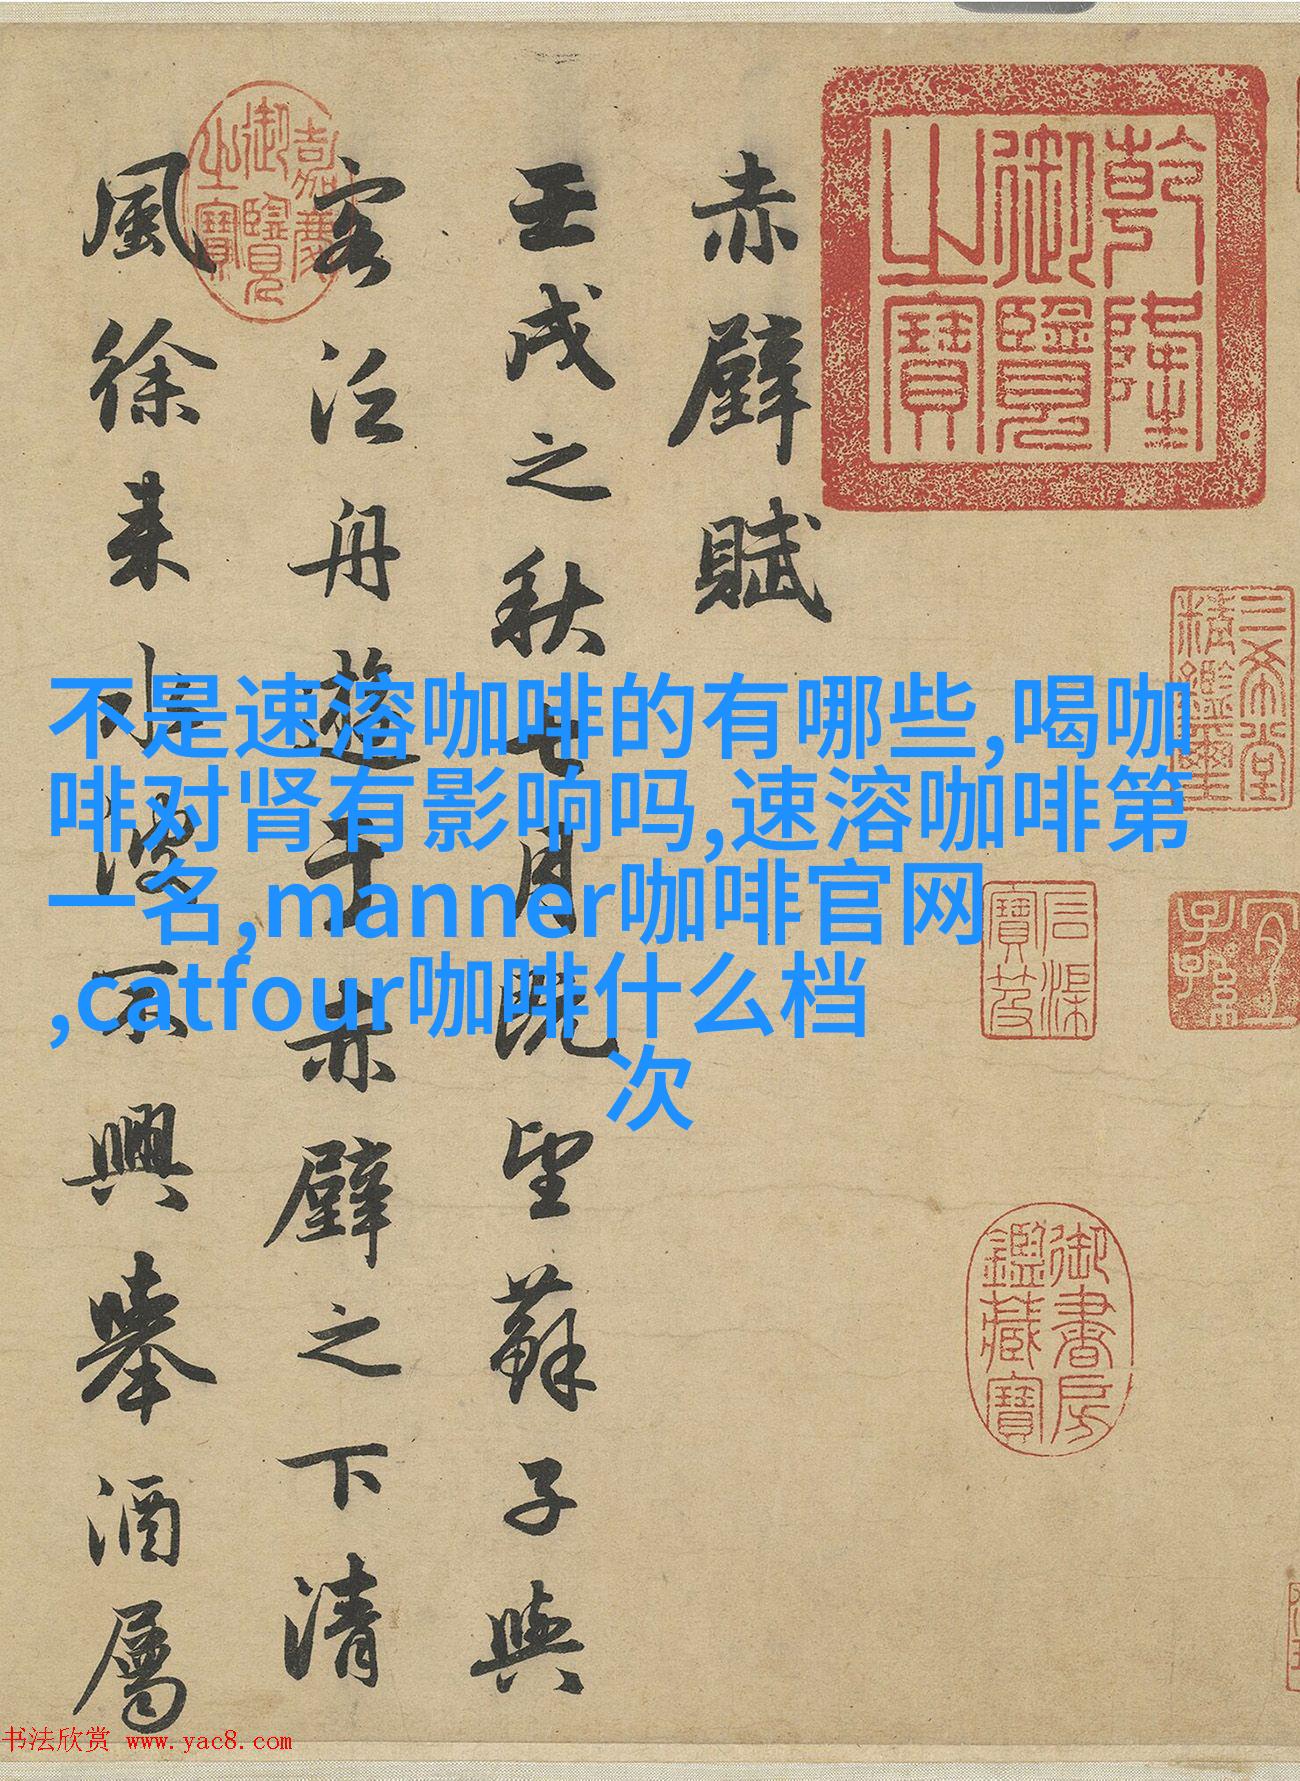 赤壁賦
壬戌之秋七月既望蘇子與
客泛舟遊于赤壁之下清
風徐来水波不興舉酒屬
不是速溶咖啡的有哪些,喝咖
啡对肾有影响吗,速溶咖啡第
一名,manner咖啡官网
,catfour咖啡什么档
次
乾隆
御覽
之寶
嘉慶
御覽
之寶
三希堂
精鑑璽
宜
子孫
石渠
寶笈
御書房
鑑藏寶
书法欣赏 www.yac8.com